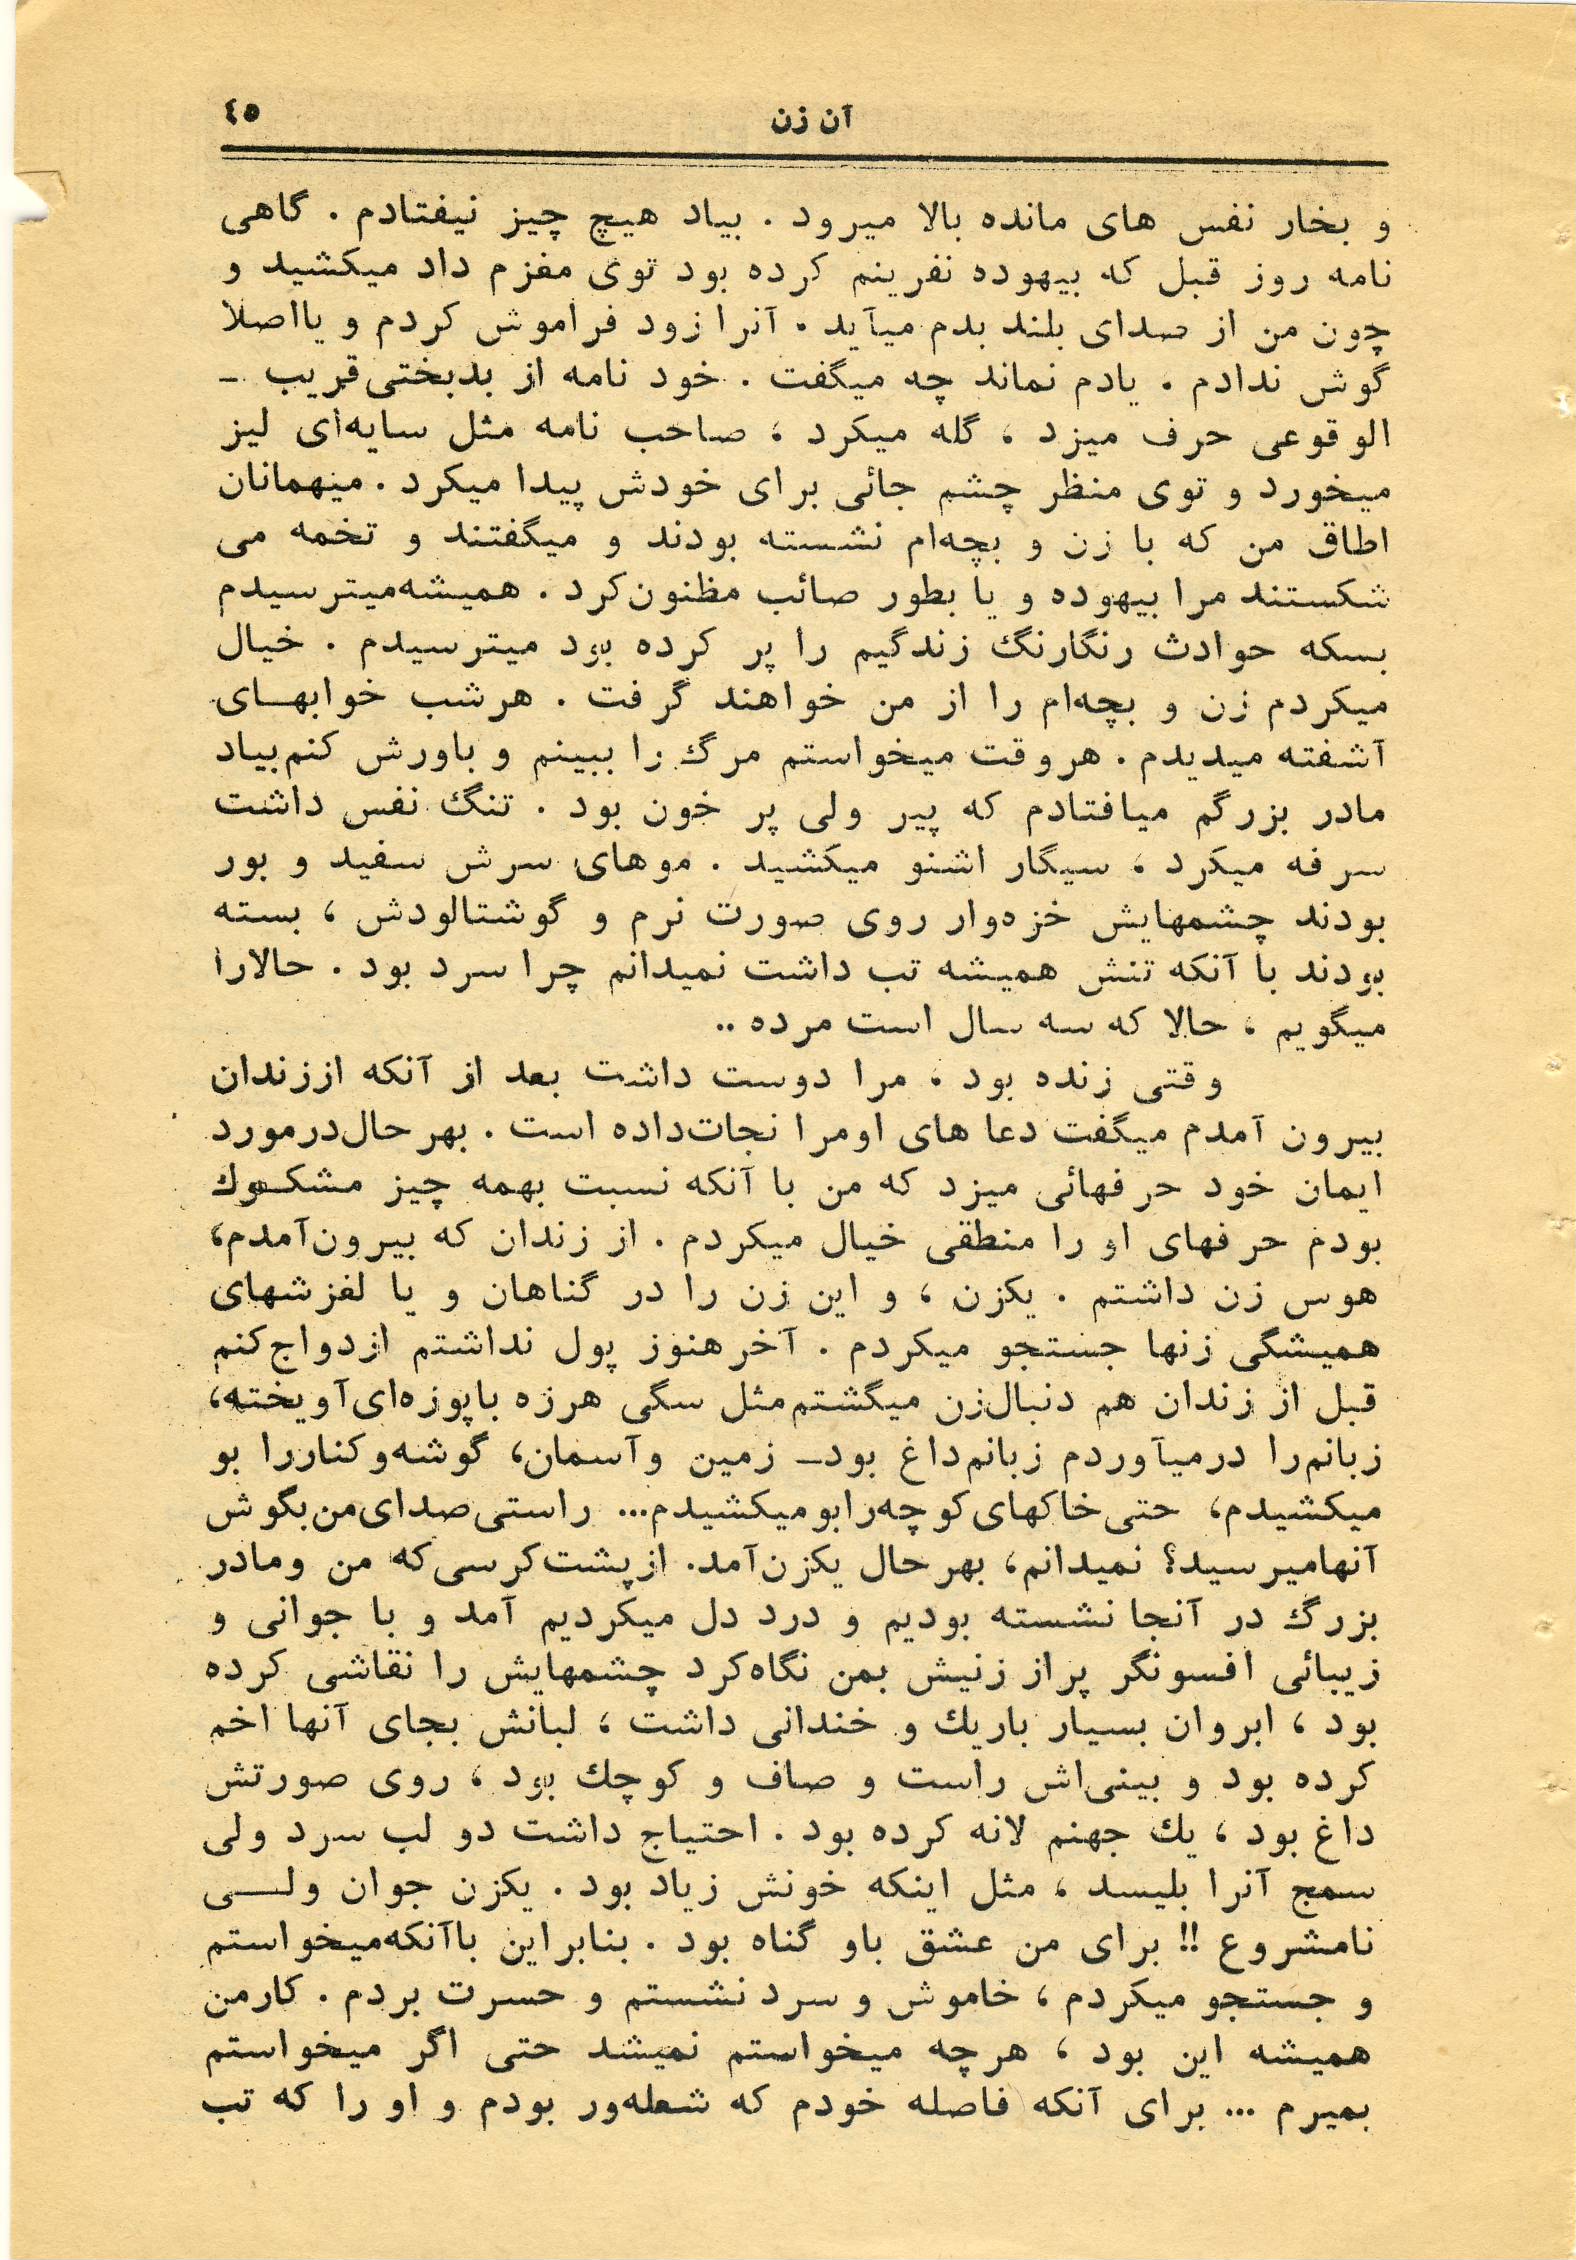 آن زن
٤٥
و بخار نفس های مانده بالا میرود . بیاد هیچ چیز نیفتادم . گاهی
نامه روز قبل که بیهوده نفرینم کرده بود توی مغزم داد میکشید و
چون من از صدای بلند بدم میآید . آنرا زود فراموش کردم و یااصلا
گوش ندادم . یادم نماند چه میگفت . خود نامه از بدبختی قریب _
الوقوعی حرف میزد ، گله میکرد ، صاحب نامه مثل سایه‌ای لیز
میخورد و توی منظر چشم جائی برای خودش پیدا میکرد . میهمانان
اطاق من که با زن و بچه‌ام نشسته بودند و میگفتند و تخمه می
شکستند مرا بیهوده و یا بطور صائب مظنون کرد . همیشه میترسیدم
بسکه حوادث رنگارنگ زندگیم را پر کرده بود میترسیدم . خیال
میکردم زن و بچه‌ام را از من خواهند گرفت . هرشب خوابهـای
آشفته میدیدم . هروقت میخواستم مرگ را ببینم و باورش کنم بیاد
مادر بزرگم میافتادم که پیر ولی پر خون بود . تنگ نفس داشت
سرفه میکرد ، سیگار اشنو میکشید . موهای سرش سفید و بور
بودند چشمهایش خزه‌وار روی صورت نرم و گوشتالودش ، بسته
بودند با آنکه تنش همیشه تب داشت نمیدانم چرا سرد بود . حالارا
میگویم ، حالا که سه سال است مرده ..
وقتی زنده بود ، مرا دوست داشت بعد از آنکه اززندان
بیرون آمدم میگفت دعا های اومرا نجات‌داده است . بهرحال‌درمورد
ایمان خود حرفهائی میزد که من با آنکه نسبت بهمه چیز مشکـوك
بودم حرفهای او را منطقی خیال میکردم . از زندان که بیرون‌آمدم،
هوس زن داشتم . یکزن ، و این زن را در گناهان و یا لغزشهای
همیشگی زنها جستجو میکردم . آخرهنوز پول نداشتم ازدواج کنم
قبل از زندان هم دنبال‌زن میگشتم‌مثل سگی هرزه باپوزه‌ای‌آویخته،
زبانم‌را درمیآوردم زبانم‌داغ بود_ زمین وآسمان، گوشه‌وکناررا بو
میکشیدم، حتی‌خاکهای‌کوچه‌رابومیکشیدم... راستی‌صدای‌من‌بگوش
آنهامیرسید؟ نمیدانم، بهرحال یکزن‌آمد. ازپشت‌کرسی‌که من ومادر
بزرگ در آنجا نشسته بودیم و درد دل میکردیم آمد و با جوانی و
زیبائی افسونگر پراز زنیش بمن نگاه‌کرد چشمهایش را نقاشی کرده
بود ، ابروان بسیار باریك و خندانی داشت ، لبانش بجای آنها اخم
کرده بود و بینی‌اش راست و صاف و کوچك بود ، روی صورتش
داغ بود ، یك جهنم لانه کرده بود . احتیاج داشت دو لب سرد ولی
سمج آنرا بلیسد ، مثل اینکه خونش زیاد بود . یکزن جوان ولـی
نامشروع !! برای من عشق باو گناه بود . بنابراین باآنکه‌میخواستم
و جستجو میکردم ، خاموش و سرد نشستم و حسرت بردم . کارمن
همیشه این بود ، هرچه میخواستم نمیشد حتی اگر میخواستم
بمیرم ... برای آنکه فاصله خودم که شعله‌ور بودم و او را که تب